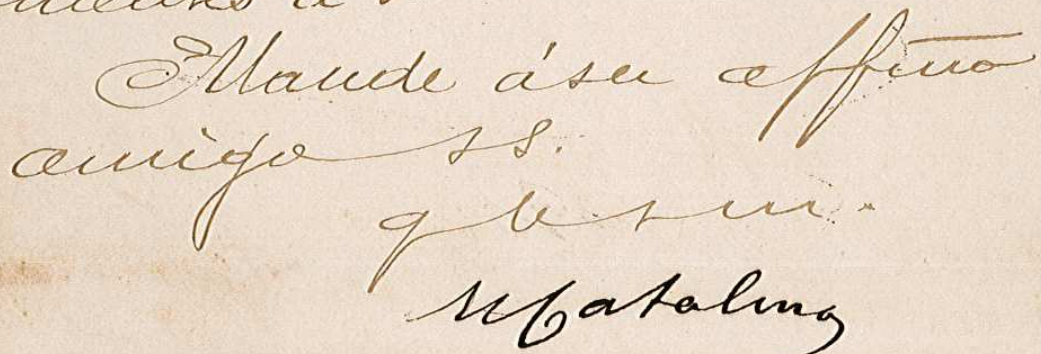 Mande á su affmo
amigo s s.
q b s m.
MCatalina